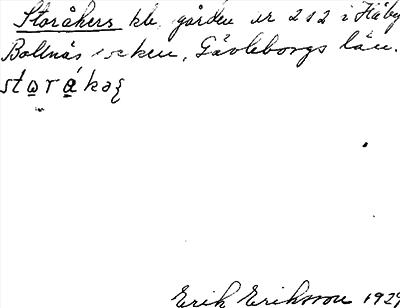 Storåkers kb. gården nr 212 i Häby
Bollnäs socken, Gävleborgs län.
Erik Eriksson 1929